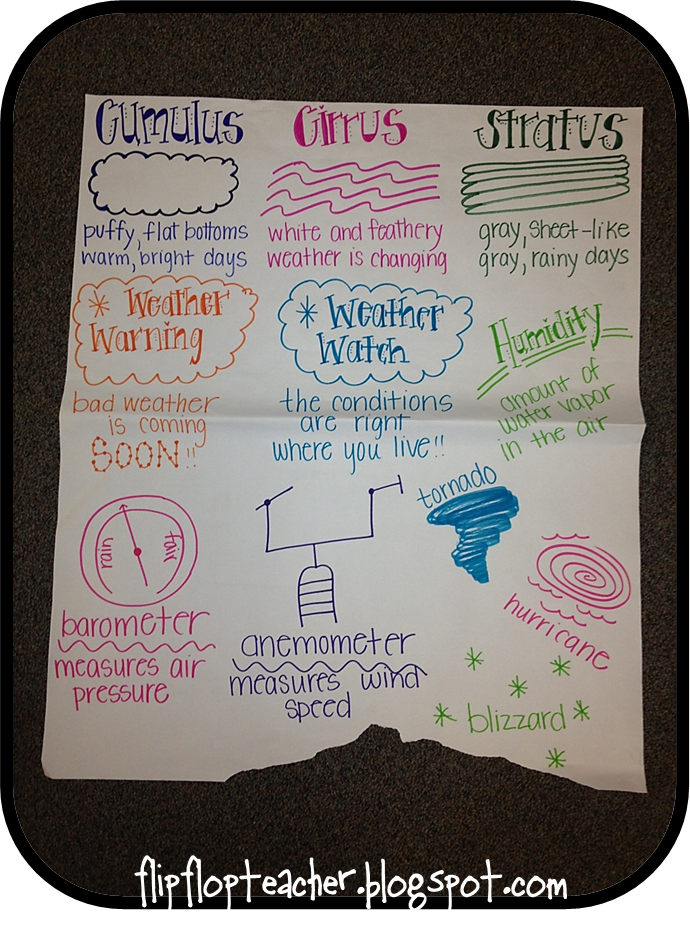 Cumulus
puffy, flat bottoms
warm, bright days
Cirrus
white and feathery
weather is changing
Stratus
gray, sheet-like
gray, rainy days
* Weather
Warning
bad weather
is coming
SOON!!
* Weather
Watch
the conditions
are right
where you live!!
Humidity
amount of
water vapor
in the air
rain
fair
barometer
measures air
pressure
anemometer
measures wind
speed
tornado
hurricane
blizzard
flipflopteacher.blogspot.com